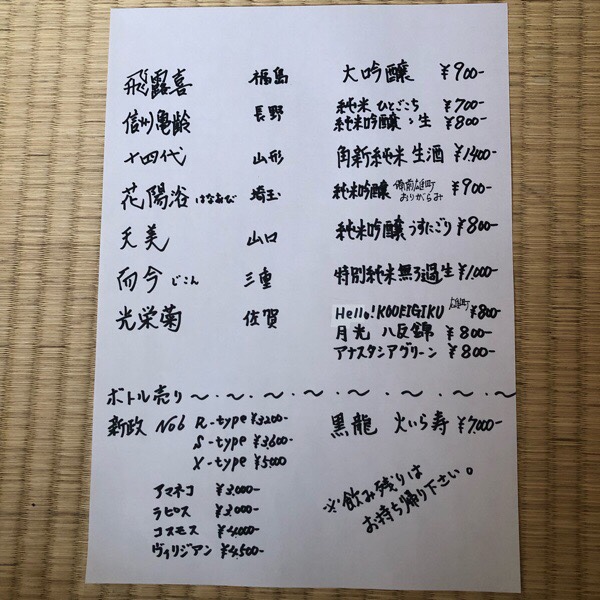 飛露喜 福島 大吟醸 ¥900-
信州亀齢 長野 純米 ひとごこち ¥700-
純米吟醸 〃 生 ¥800-
十四代 山形 角新純米 生酒 ¥1,400-
花陽浴 はなあび 埼玉 純米吟醸 備前雄町 おりがらみ ¥900-
天美 山口 純米吟醸 うすにごり ¥800-
而今 じこん 三重 特別純米無ろ過生 ¥1,000-
光栄菊 佐賀 Hello! KOOEIGIKU 雄町 ¥800-
月光 八反錦 ¥800-
アナスタシアグリーン ¥800-
ボトル売り 〜・〜・〜・〜・〜・〜・〜・〜
新政 No6 R-type ¥3,200- 黒龍 火いら寿 ¥7,000-
S-type ¥3,600-
X-type ¥5,000
アマネコ ¥3,000-
ラピス ¥3,000-
コスモス ¥4,000-
ヴィリジアン ¥4,500-
※飲み残りは
お持ち帰り下さい。